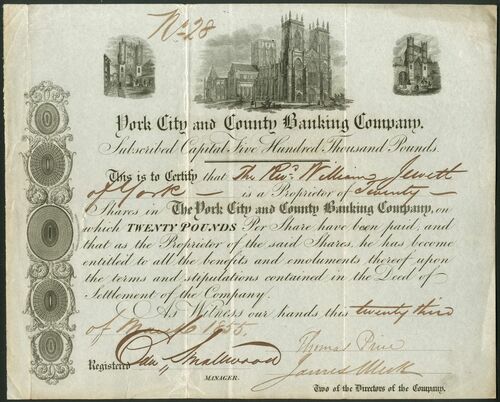 No. 28
York City and County Banking Company.
Subscribed Capital Five Hundred Thousand Pounds.
This is to Certify that The Revd. William Jewitt
of York — is a Proprietor of Twenty —
Shares in The York City and County Banking Company, on
which TWENTY POUNDS Per Share have been paid, and
that as the Proprietor of the said Shares, he has become
entitled to all the benefits and emoluments thereof upon
the terms and stipulations contained in the Deed of
Settlement of the Company.
As Witness our hands this twenty third
of 1855.
Registered Smallwood
MANAGER.
Thomas Price
James Meek
Two of the Directors of the Company.